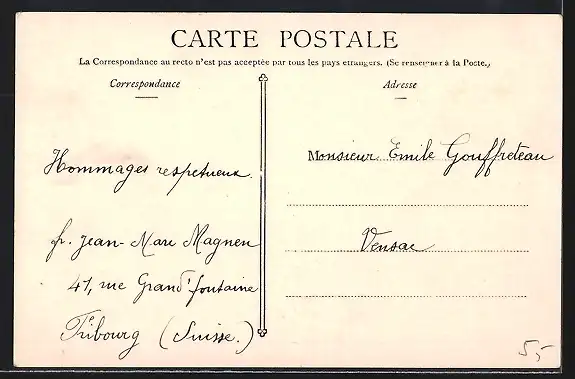 CARTE POSTALE
La Correspondance au recto n'est pas acceptée par tous les pays étrangers. (Se renseigner à la Poste.)
Correspondance
Adresse
Hommages respetueux.
fr. Jean-Marc Magnen
41, rue Grand'fontaine
Fribourg (Suisse.)
Monsieur Emile Gouffreteau
Vensac
5,-